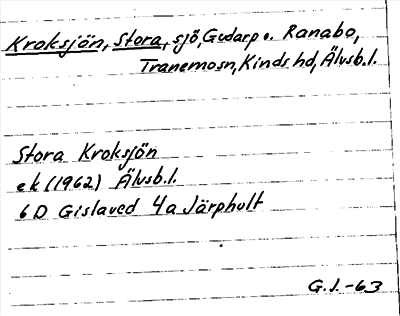 Kroksjön, Stora, sjö, Gudarp o. Ranabo,
Tranemosn, Kinds hd, Älvsb.l.
Stora Kroksjön
ek (1962) Älvsb.l.
6D Gislaved 4a Järphult
G.J.-63